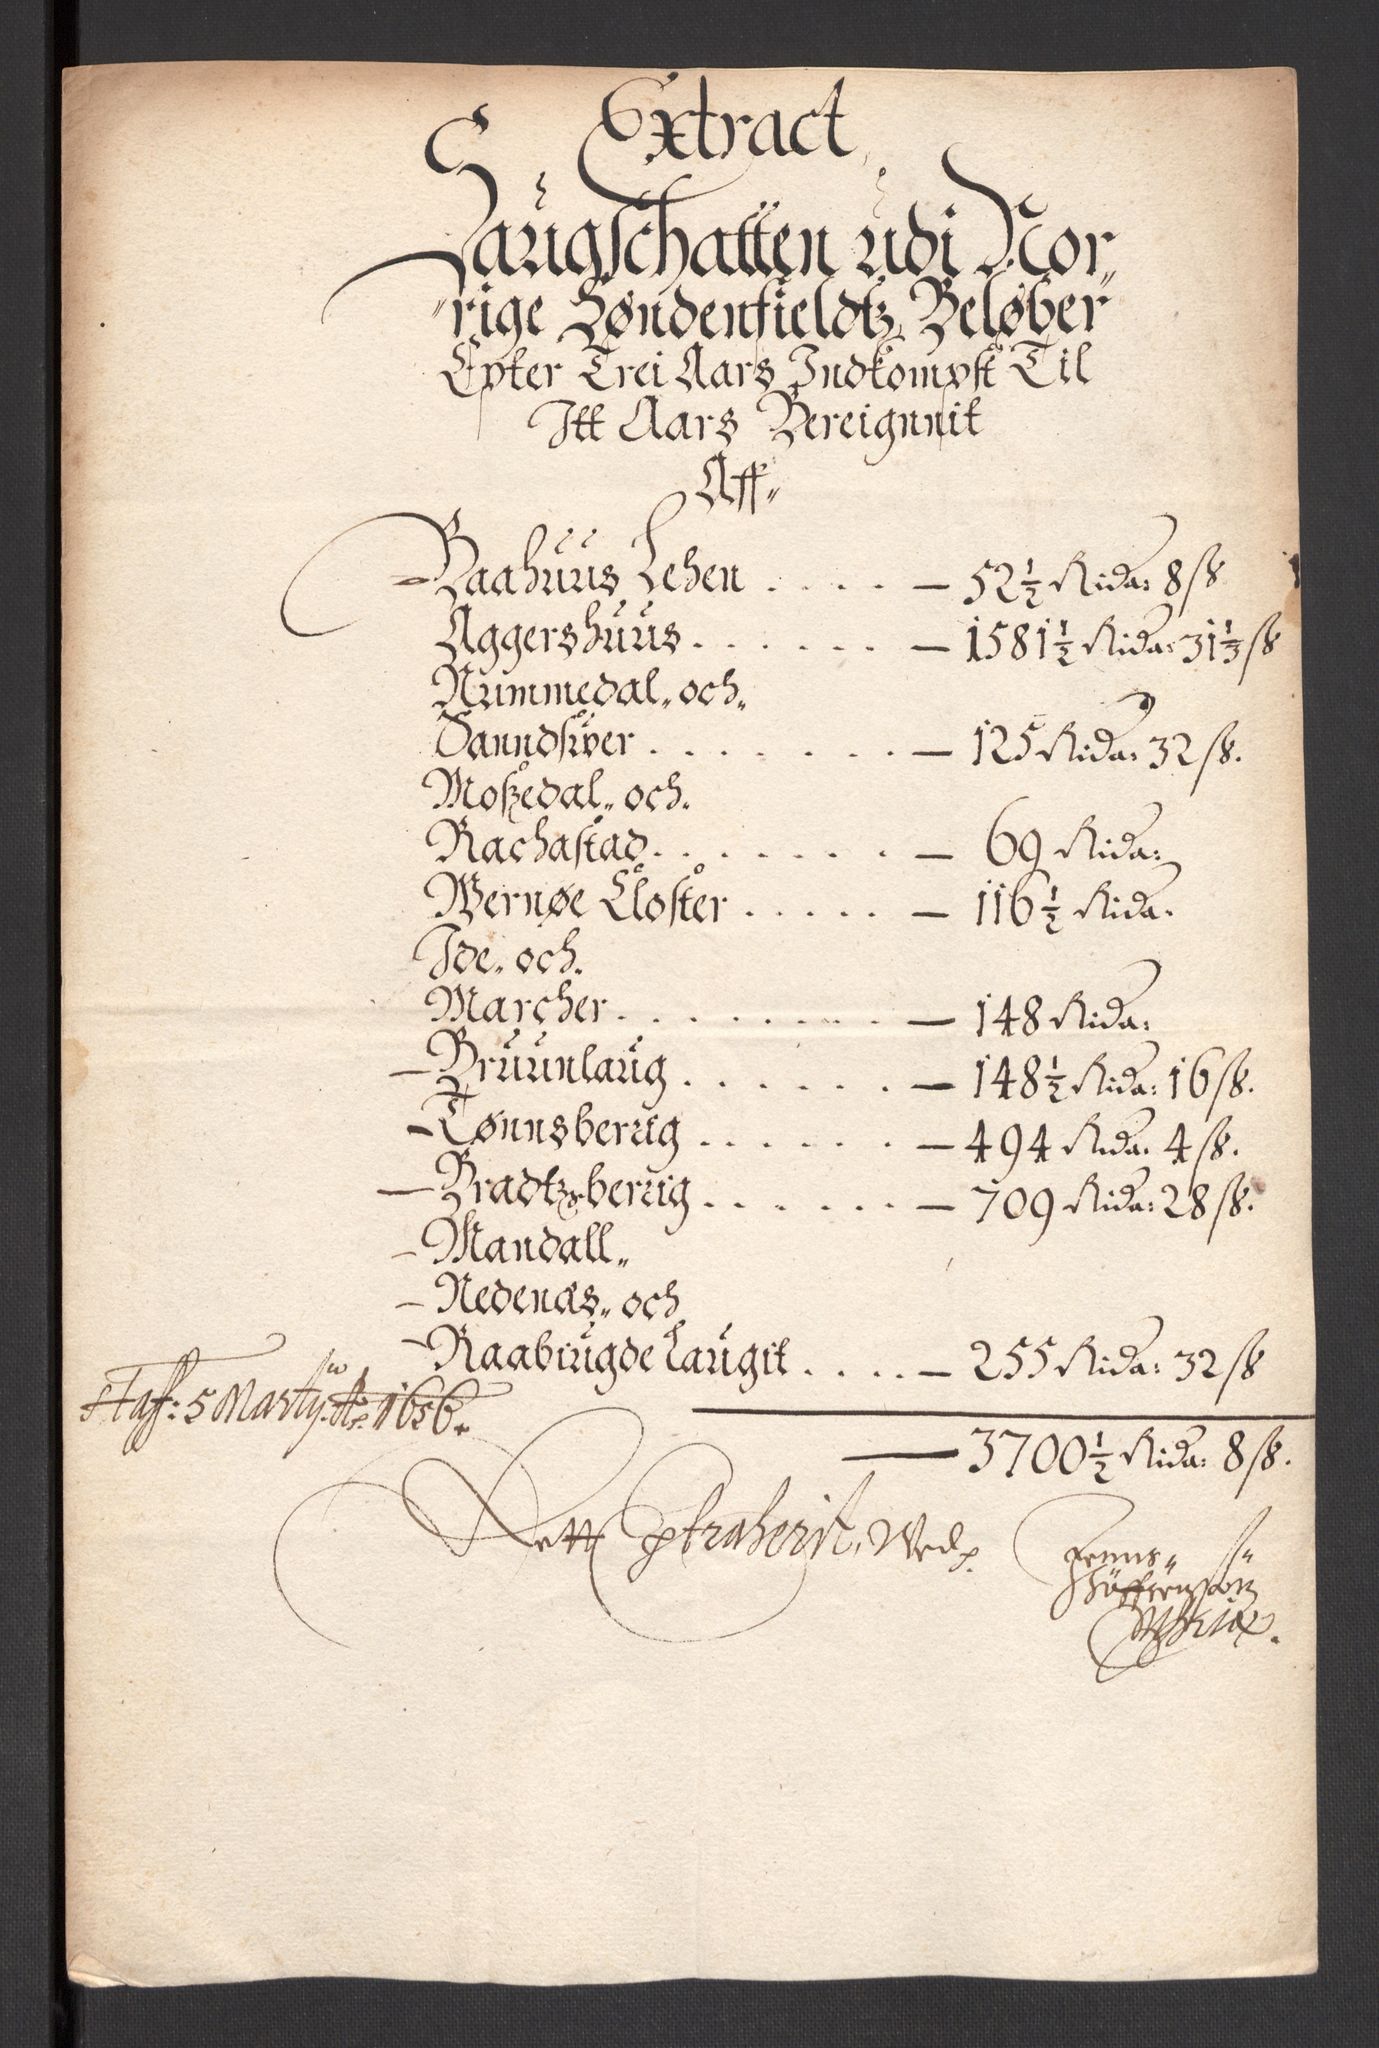 Extract
Saugschatten udi Nor-
rige Söndenfieldtz Beløber
Epter Trei Aars Indkompst Til
Itt Aars Bereignnit
Aff
Baahuus Lehen . . . . — 52½ Rixda: 8 sk
Aggershuus . . . . . . — 1581½ Rixda: 31⅓ sk
Nummedal och
Sanndsver . . . . . . . — 125 Rixda: 32 sk.
Moszedal och
Rachastad . . . . . . . — 69 Rixda:
Wernøe Closter . . . . . — 116½ Rixda:
Ide och
Marcher . . . . . . . . — 148 Rixda:
Bruunlaug . . . . . . — 148½ Rixda: 16 sk.
Tønnsberug . . . . . . — 494 Rixda: 4 sk.
Bradtzberug . . . . . . — 709 Rixda: 28 sk.
Mandall
Nedenæs och
Raabiugde Laugit . . . . — 255 Rixda: 32 sk
Haff: 5 Marty Ao 1656.
3700½ Rixda: 8 sk.
Rett Extraherit, Ved